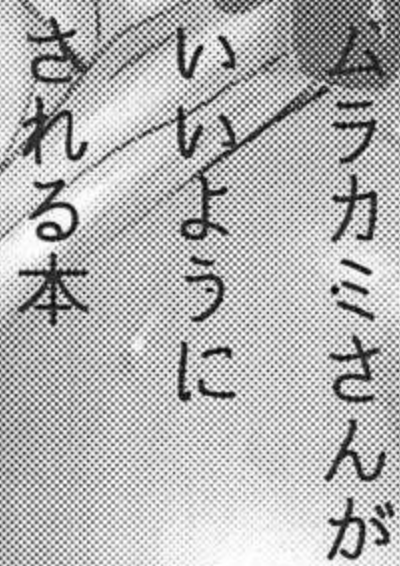 ムラカミさんが
いいように
される本